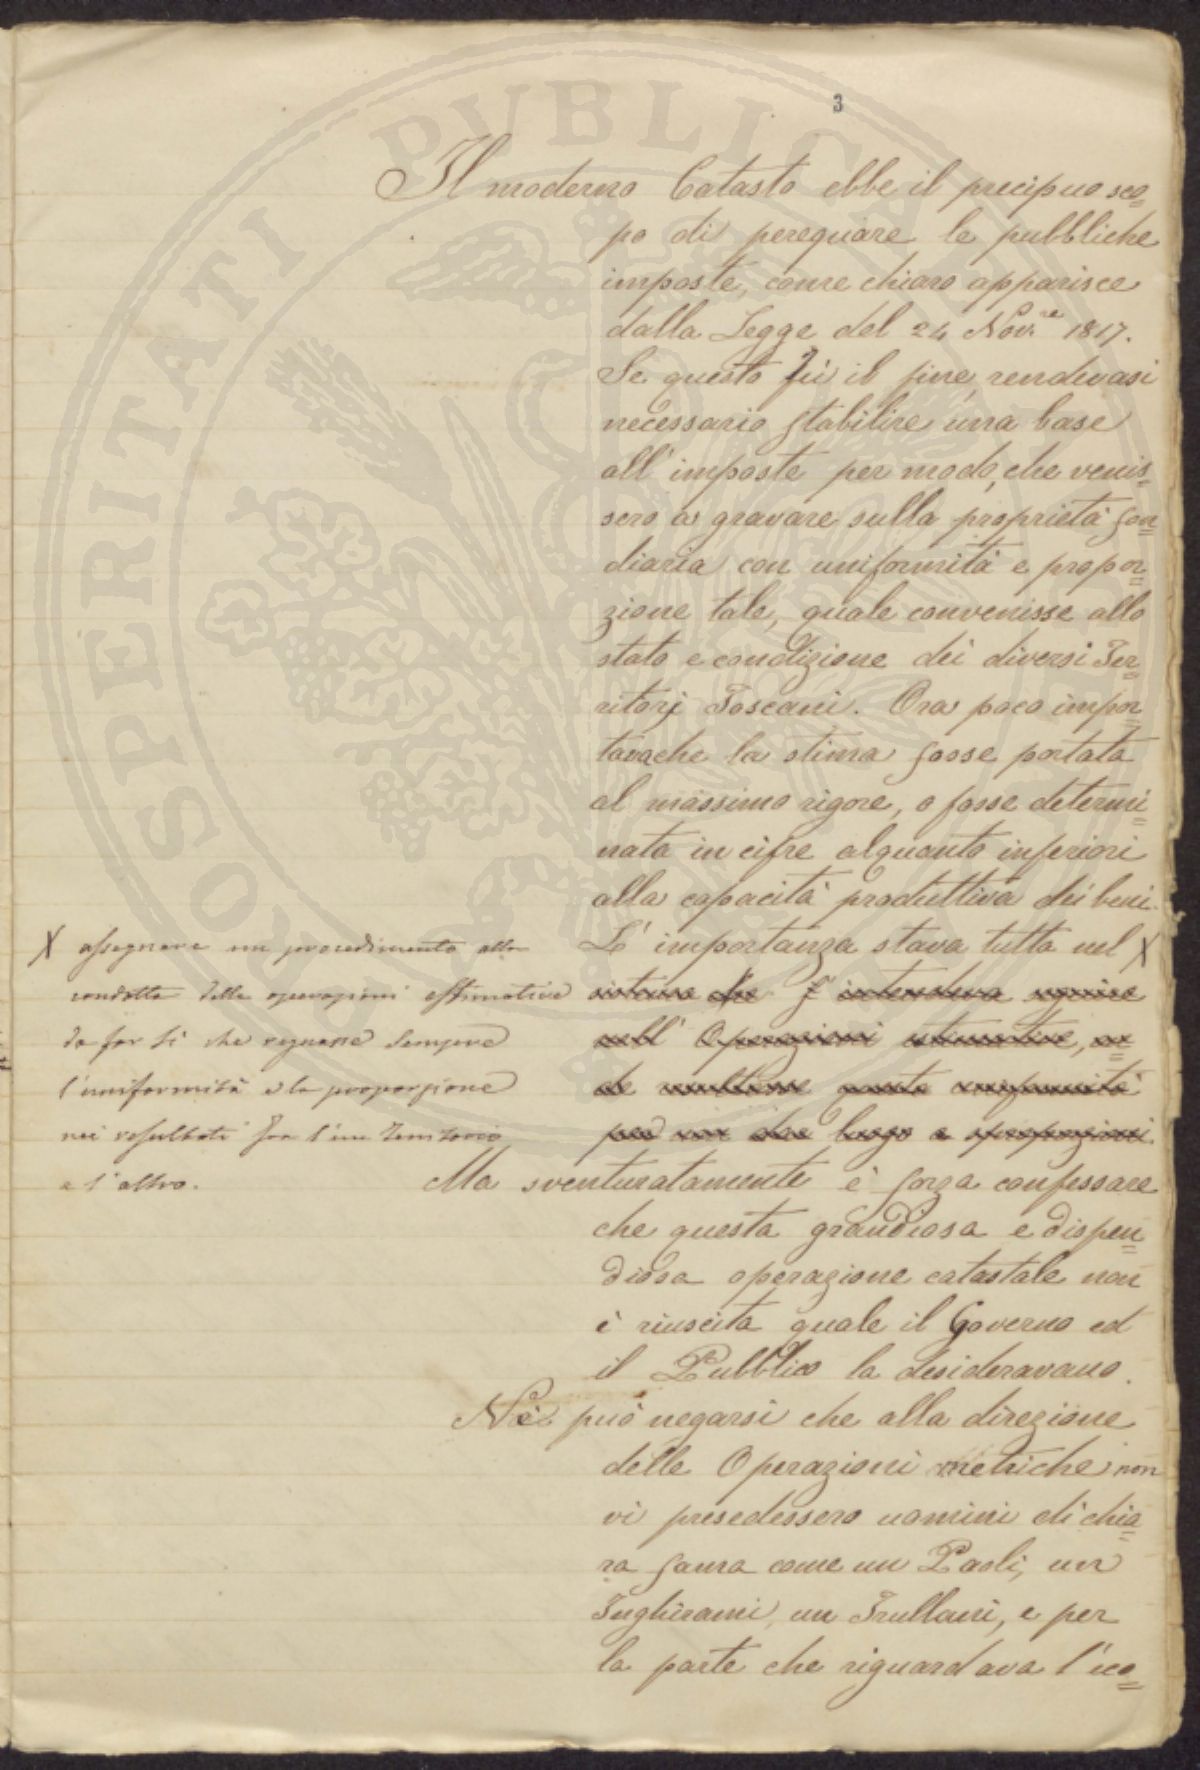 3
Il moderno Catasto ebbe il precipuo sco=
po di perequare le pubbliche
imposte, come chiaro apparisce
dalla Legge del 24 Nov.re 1817.
Se questo fù il fine, rendevasi
necessario stabilire una base
all'imposte per modo, che venis=
sero a gravare sulla proprietà fon=
diaria con uniformità e propor=
zione tale, quale convenisse allo
stato e condizione dei diversi Ter=
ritorj Toscani. Ora poco impor=
tava che la stima fosse portata
al massimo rigore, o fosse determi=
nata in cifre alquanto inferiori
alla capacità produttiva dei beni.
L'importanza stava tutta nel X
sistema che s'intendeva seguire
nell'Operazioni estimative, on=
de resultasse questa uniformità
per non dar luogo a sproporzioni.
X assegnare un procedimento alla
condotta delle operazioni estimative
da far sì che regnasse sempre
l'uniformità e la proporzione
nei resultati fra l'un Territorio
e l'altro.
Ma sventuratamente è forza confessare
che questa grandiosa e dispen=
diosa operazione catastale non
è riuscita quale il Governo ed
il Pubblico la desideravano.
Nè può negarsi che alla direzione
delle Operazioni metriche non
vi presedessero uomini di chia=
ra fama come un Paoli, un
Inghirami, un Frullani, e per
la parte che riguardava l'eco=
PROSPERITATI PUBLICAE